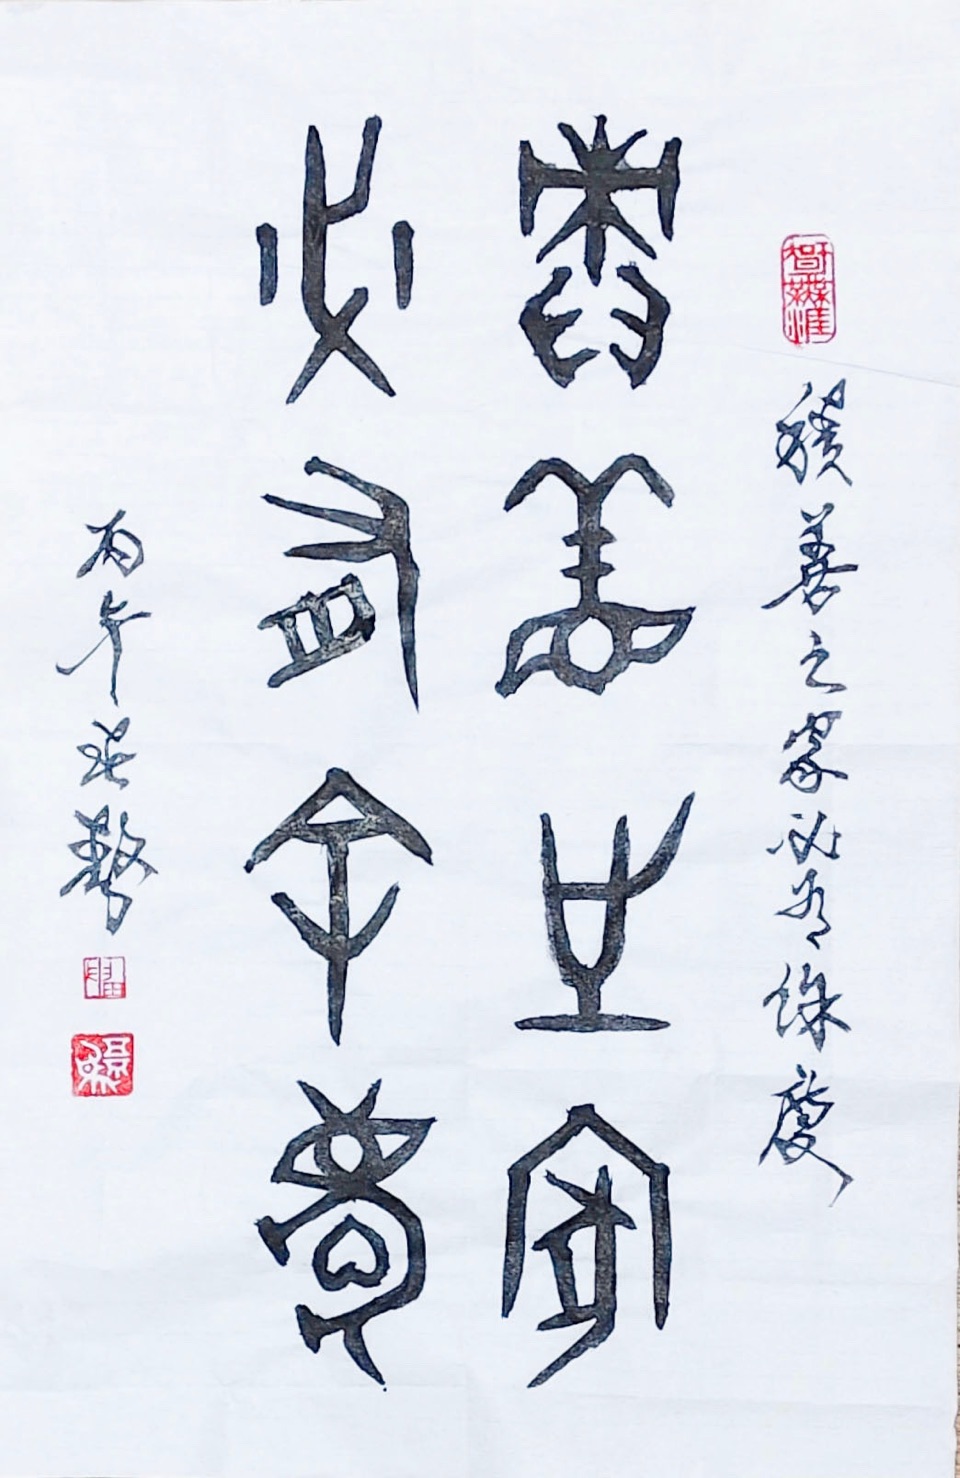 積善之家必有餘慶
積善之家
必有余慶
丙午